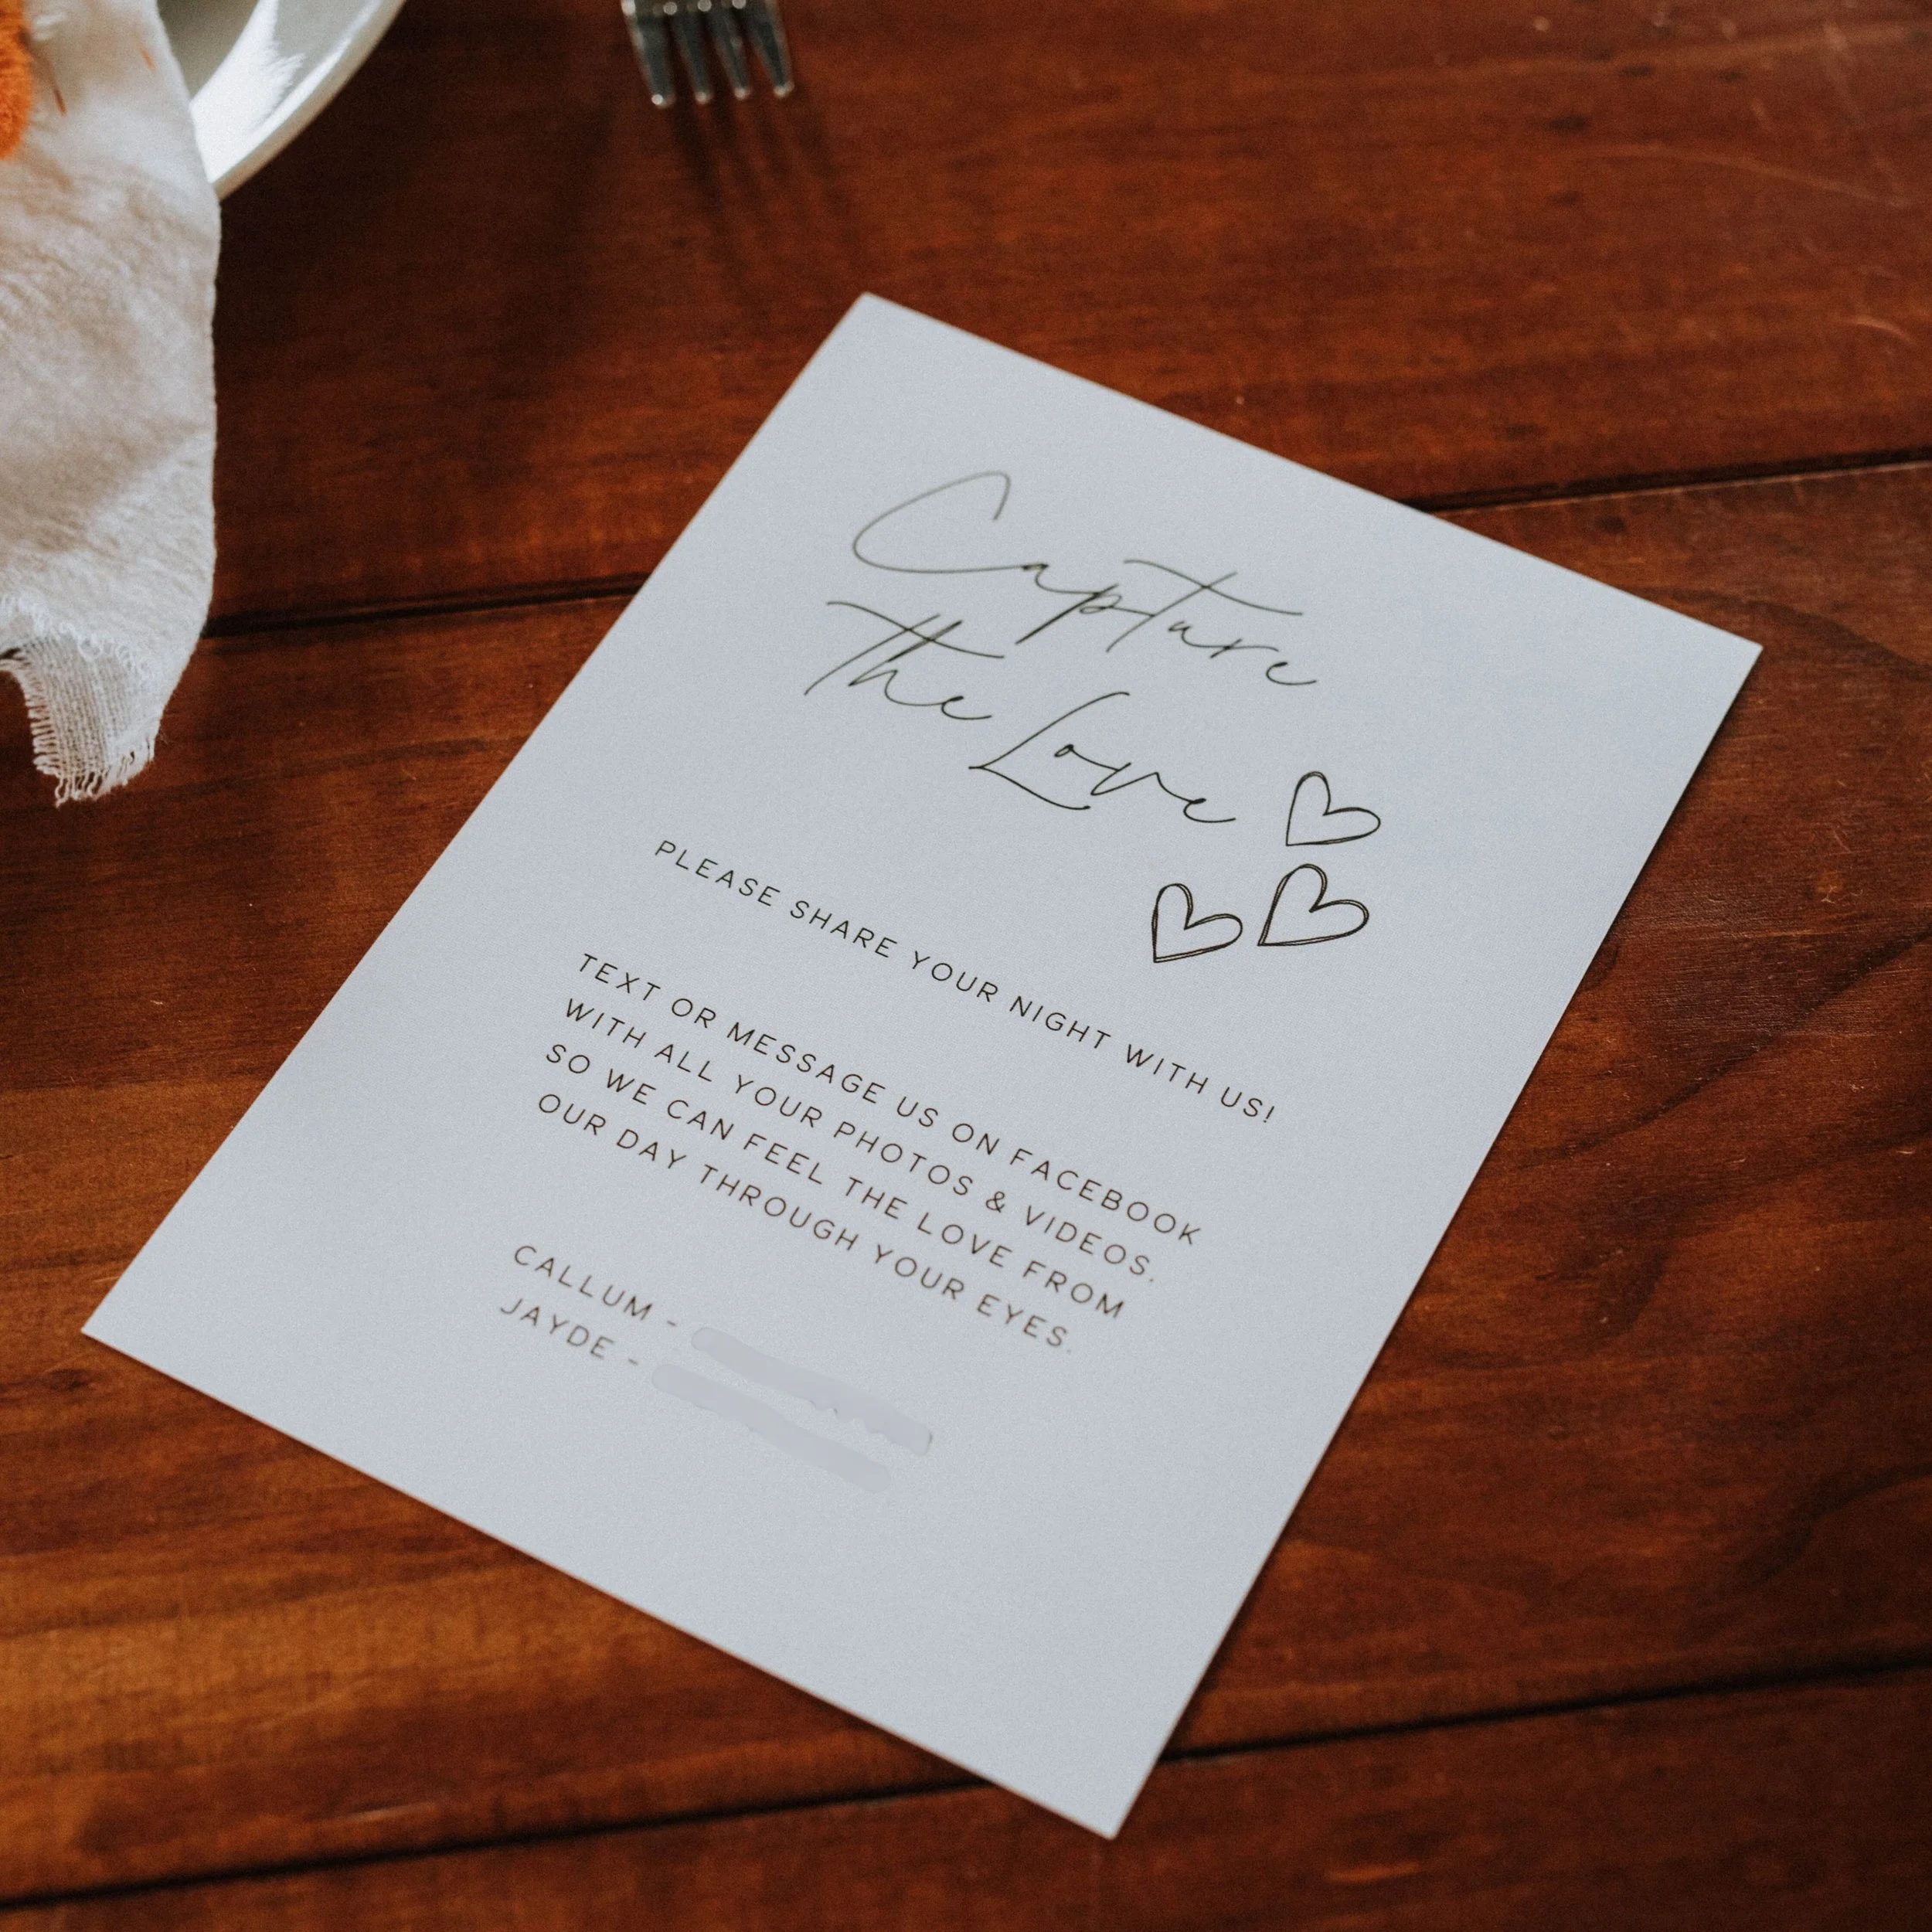 Capture
The Love
PLEASE SHARE YOUR NIGHT WITH US!
TEXT OR MESSAGE US ON FACEBOOK
WITH ALL YOUR PHOTOS & VIDEOS.
SO WE CAN FEEL THE LOVE FROM
OUR DAY THROUGH YOUR EYES.
CALLUM -
JAYDE -